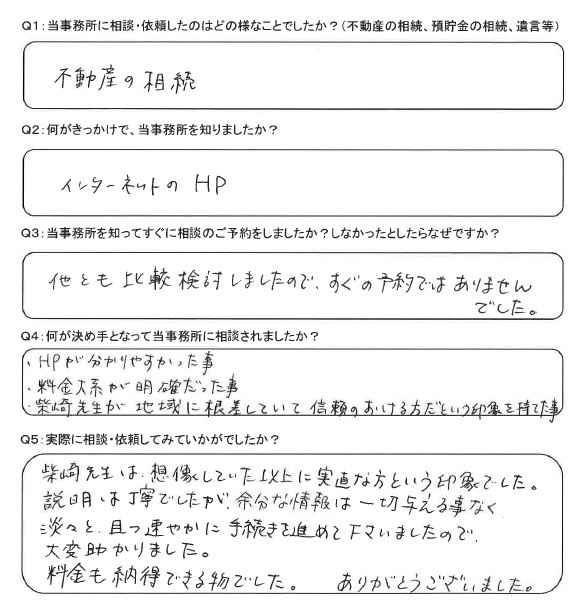 Q1：当事務所に相談・依頼したのはどの様なことでしたか？（不動産の相続、預貯金の相続、遺言等）
不動産の相続
Q2：何がきっかけで、当事務所を知りましたか？
インターネットの HP
Q3：当事務所を知ってすぐに相談のご予約をしましたか？しなかったとしたらなぜですか？
他とも比較検討しましたので、すぐの予約ではありません
でした。
Q4：何が決め手となって当事務所に相談されましたか？
・HPが分かりやすかった事
・料金大系が明確だった事
・柴崎先生が地域に根差していて信頼のおける方だという印象を持てた事
Q5：実際に相談・依頼してみていかがでしたか？
柴崎先生は、想像していた以上に実直な方という印象でした。
説明は丁寧でしたが、余分な情報は一切与える事なく
淡々と、且つ速やかに手続きを進めて下さいましたので、
大変助かりました。
料金も納得できる物でした。　ありがとうございました。